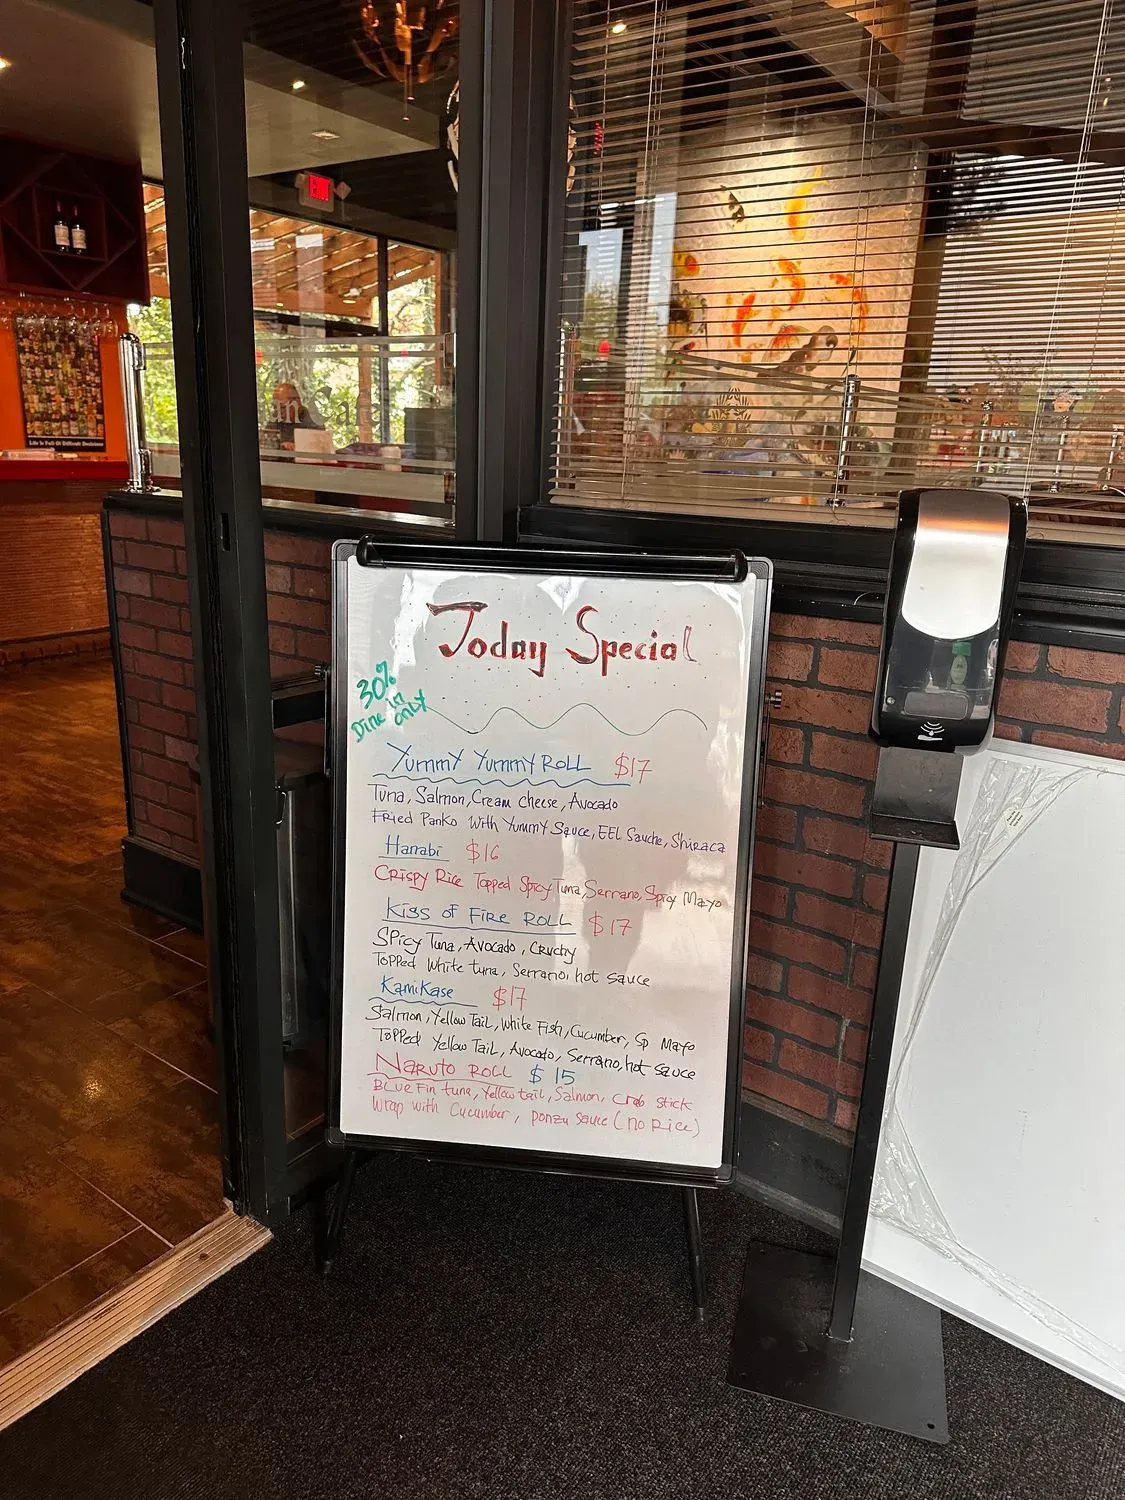 Today Special
30%
Dine in
only
Yummy Yummy ROLL $17
Tuna, Salmon, Cream cheese, Avocado
Fried Panko with Yummy Sauce, EEL Sauche, Shiraca
Hanabi $16
Crispy Rice Topped Spicy Tuna, Serrano, Spicy Mayo
Kiss of Fire ROLL $17
Spicy Tuna, Avocado, Cruchy
Topped White tuna, Serrano, hot sauce
Kamikase $17
Salmon, Yellow Tail, White Fish, Cucumber, Sp Mayo
Topped Yellow Tail, Avocado, Serrano, hot sauce
Naruto ROLL $15
Blue Fin tuna, Yellow tail, Salmon, Crab Stick
Wrap with Cucumber, Ponzu Sauce (no Rice)
Life Is Full Of Difficult Decisions